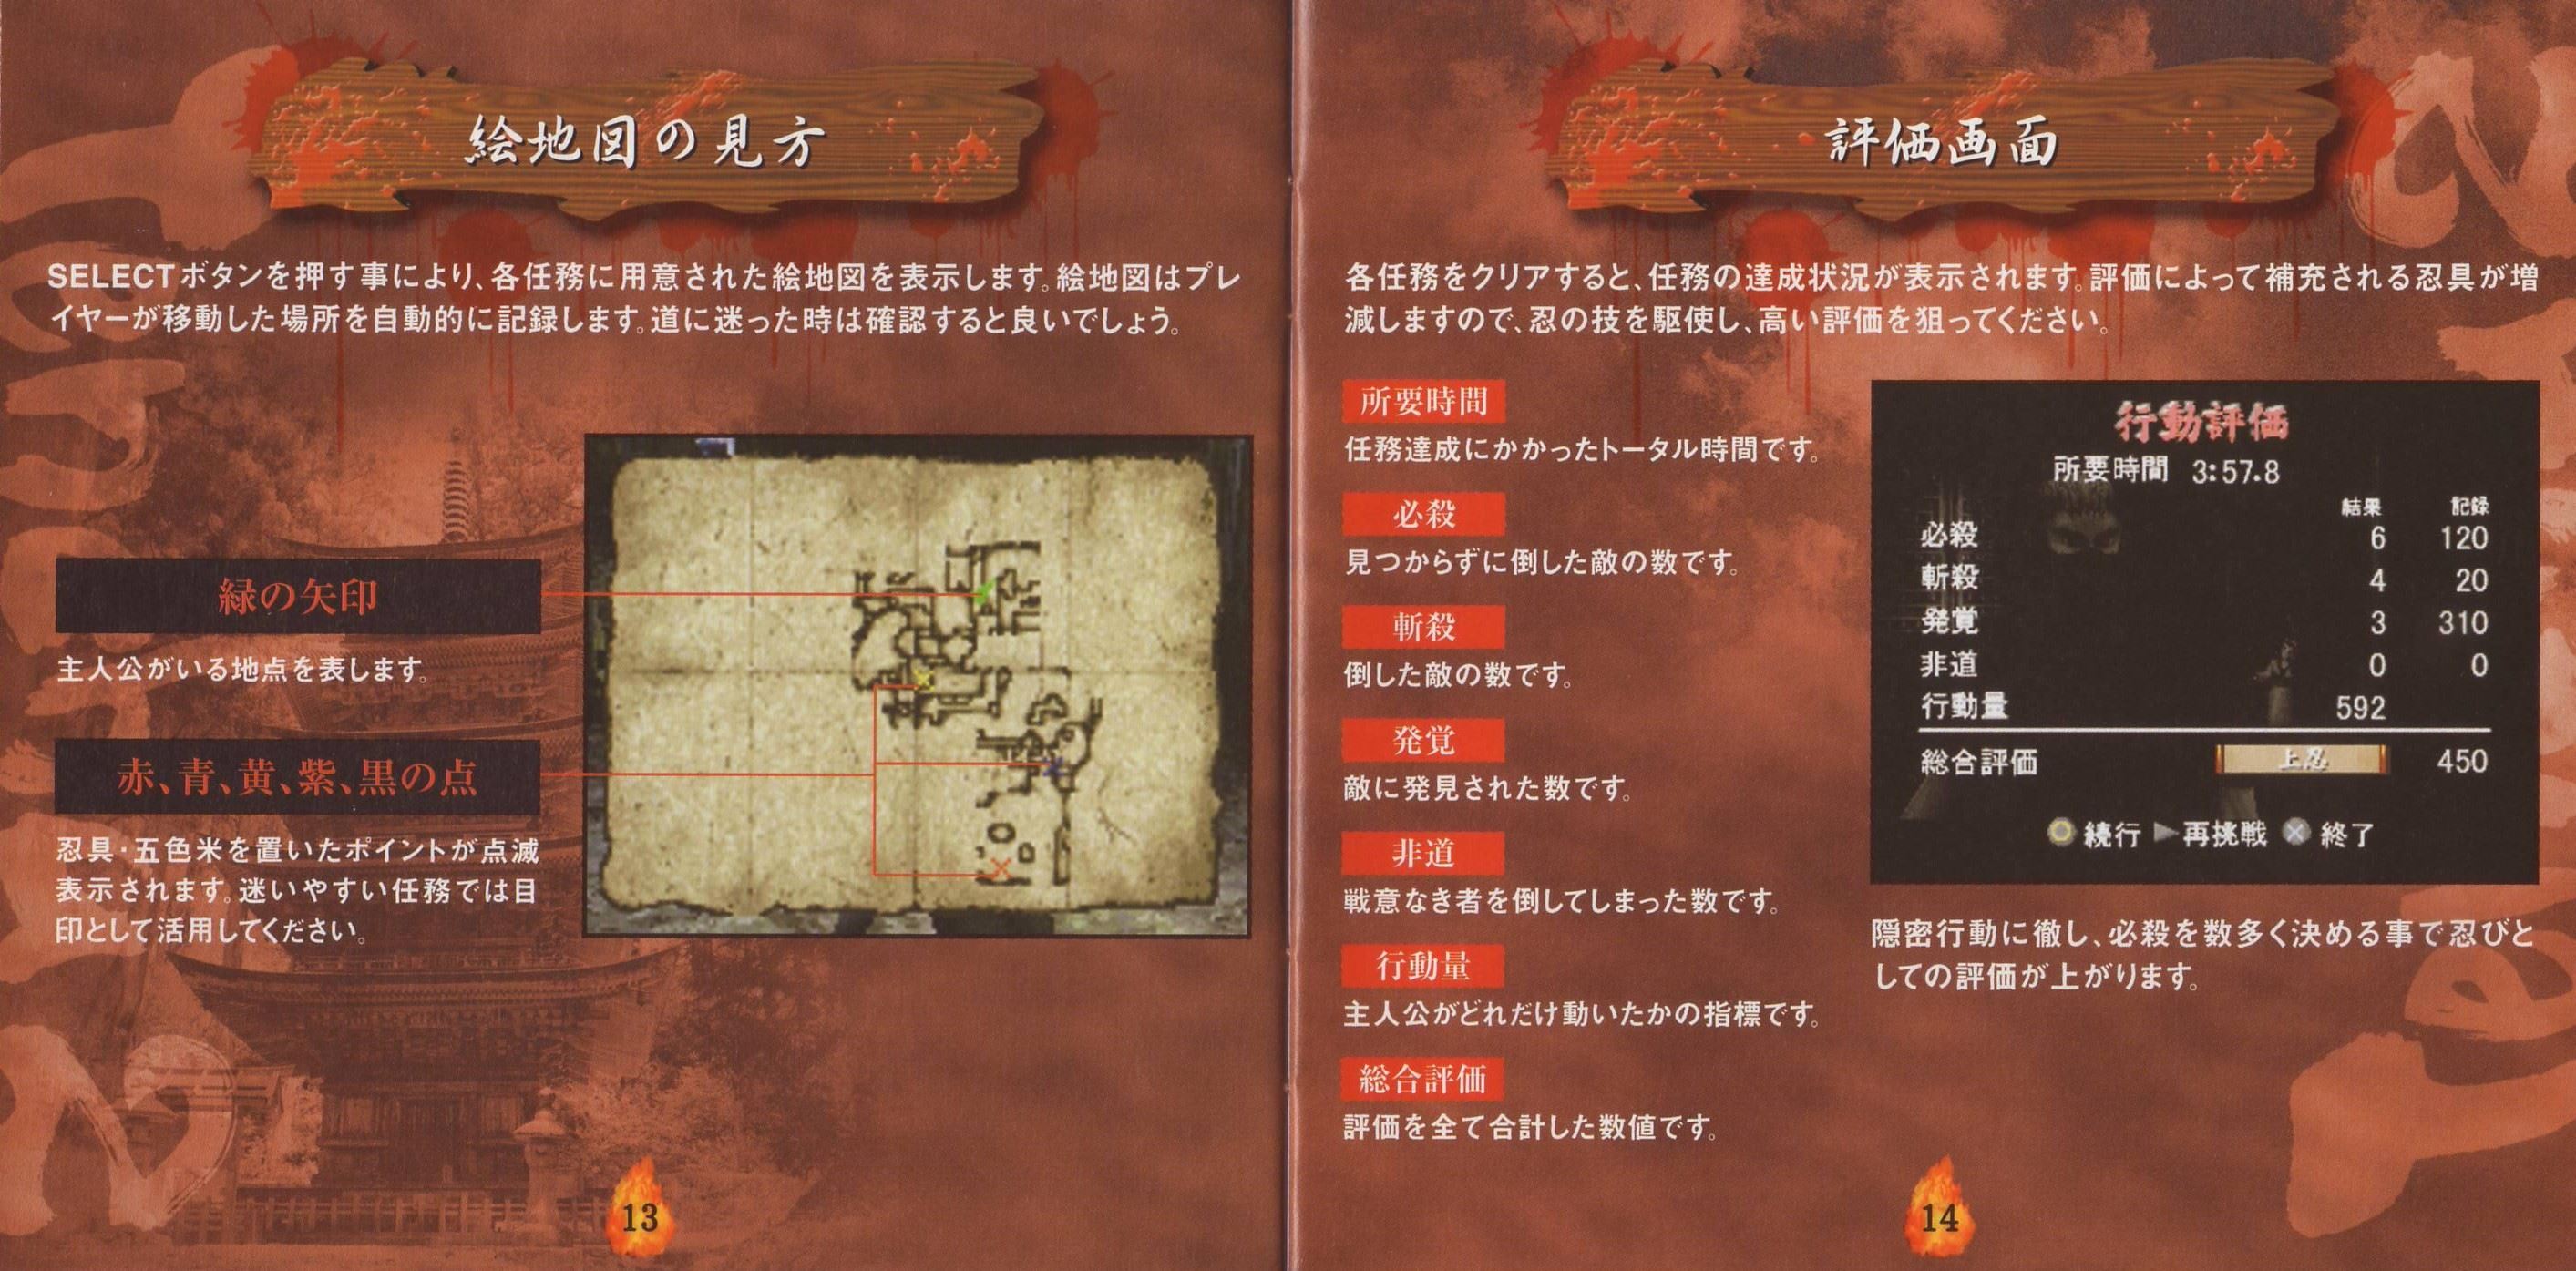 絵地図の見方
SELECTボタンを押す事により、各任務に用意された絵地図を表示します。絵地図はプレ
イヤーが移動した場所を自動的に記録します。道に迷った時は確認すると良いでしょう。
緑の矢印
主人公がいる地点を表します。
赤、青、黄、紫、黒の点
忍具・五色米を置いたポイントが点滅
表示されます。迷いやすい任務では目
印として活用してください。
13
評価画面
各任務をクリアすると、任務の達成状況が表示されます。評価によって補充される忍具が増
減しますので、忍の技を駆使し、高い評価を狙ってください。
所要時間
任務達成にかかったトータル時間です。
必殺
見つからずに倒した敵の数です。
斬殺
倒した敵の数です。
発覚
敵に発見された数です。
非道
戦意なき者を倒してしまった数です。
行動量
主人公がどれだけ動いたかの指標です。
総合評価
評価を全て合計した数値です。
行動評価
所要時間 3:57.8
結果 記録
必殺 6 120
斬殺 4 20
発覚 3 310
非道 0 0
行動量 592
総合評価 上忍 450
続行 再挑戦 終了
隠密行動に徹し、必殺を数多く決める事で忍びと
しての評価が上がります。
14